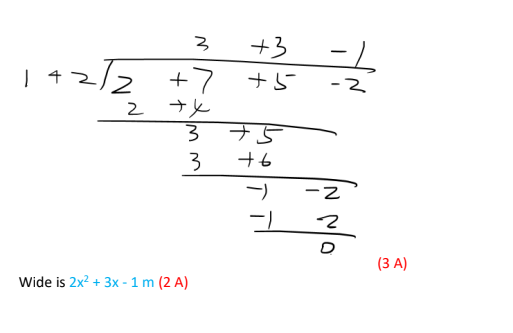 3 +3 -1
1 +2 2 +7 +5 -2
2 +4
3 +5
3 +6
-1 -2
-1 2
0
(3 A)
Wide is 2x² + 3x - 1 m (2 A)